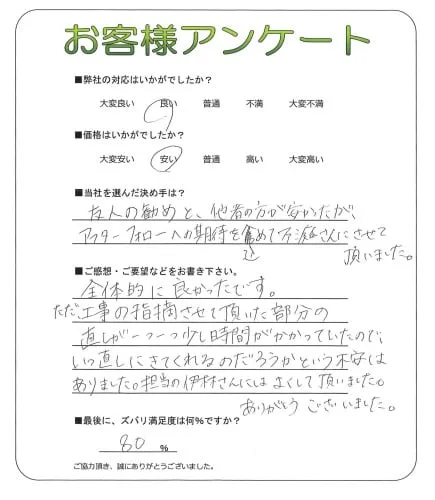 お客様アンケート
■弊社の対応はいかがでしたか?
大変良い 良い 普通 不満 大変不満
■価格はいかがでしたか?
大変安い 安い 普通 高い 大変高い
■当社を選んだ決め手は?
友人の勧めと、他者の方が安かったが、
アフターフォローへの期待を込めて さんにさせて
頂いました。
■ご感想・ご要望などをお書き下さい。
全体的に良かったです。
ただ、工事の指摘させて頂いた部分の
直しが一つ一つ少し時間がかかっていたので、
いつ直しにきてくれるのだろうかという不安は
ありました。担当の伊林さんにはよくして頂いました。
ありがとうございました。
■最後に、ズバリ満足度は何%ですか?
80 %
ご協力頂き、誠にありがとうございました。